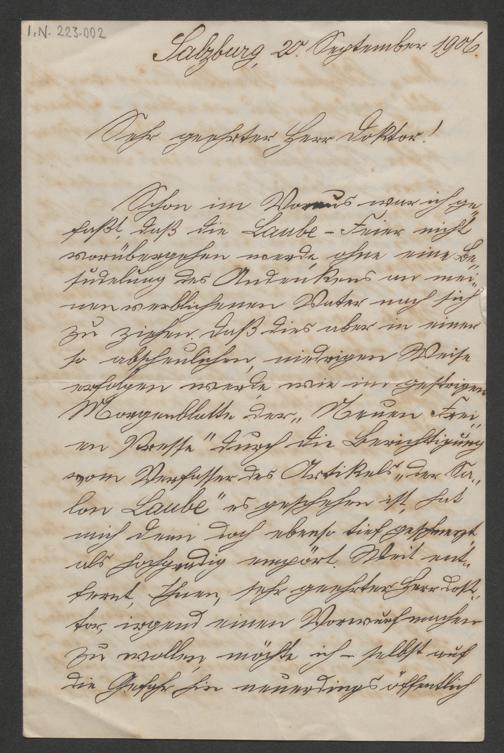 I.N. 223.002
Salzburg, 20. September 1906.
Sehr geehrter Herr Doktor!
Schon im Voraus war ich ge-
faßt, daß die Laube-Feier nicht
vorübergehen werde, ohne eine Be-
sudelung des Andenkens an mei-
nen verblichenen Vater nach sich
zu ziehen. Daß dies aber in einer
so abscheulichen, niedrigen Weise
erfolgen werde, wie im gestrigen
Morgenblatte der „Neuen Frei-
en Presse" durch die Berichtigung
vom Verfasser des Artikels „der Sa-
lon Laube" es geschehen ist, hat
mich denn doch ebenso tief geschmerzt
als hochgradig empört. Weit ent-
fernt, Ihnen, sehr geehrter Herr Dok-
tor, irgend einen Vorwurf machen
zu wollen, möchte ich – selbst auf
die Gefahr hin neuerdings öffentlich